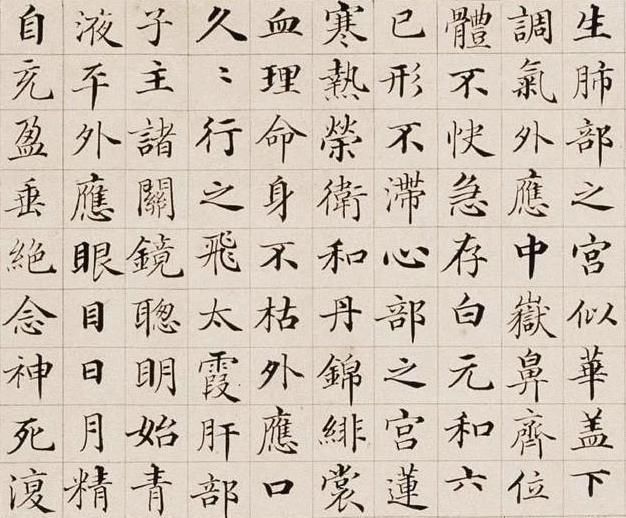 生肺部之宮似華盖下
調氣外應中嶽鼻齊位
體不快急存白元和六
已形不滯心部之宮蓮
寒熱榮衛和丹錦緋裳
血理命身不枯外應口
久〻行之飛太霞肝部
子主諸關鏡聰明始青
液平外應眼目日月精
自充盈垂絕念神死復